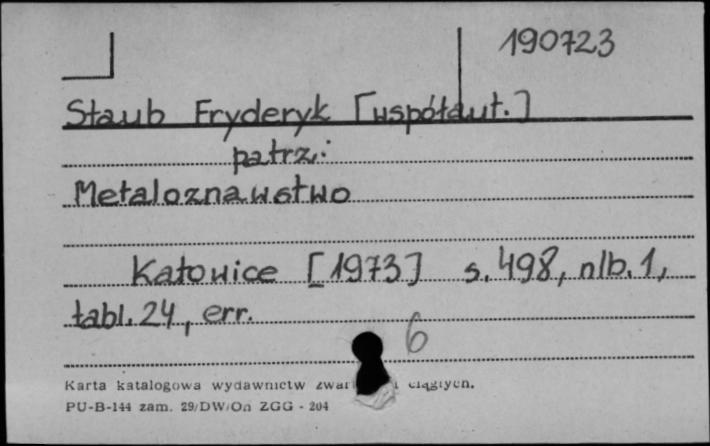 190723
Staub Fryderyk [współaut.]
patrz:
Metaloznawstwo
Katowice [1973] s. 498, nlb. 1,
tabl. 24, err.
6
Karta katalogowa wydawnictw i ciągłych.
PU-B-144 zam. 29/DW/On ZGG - 204